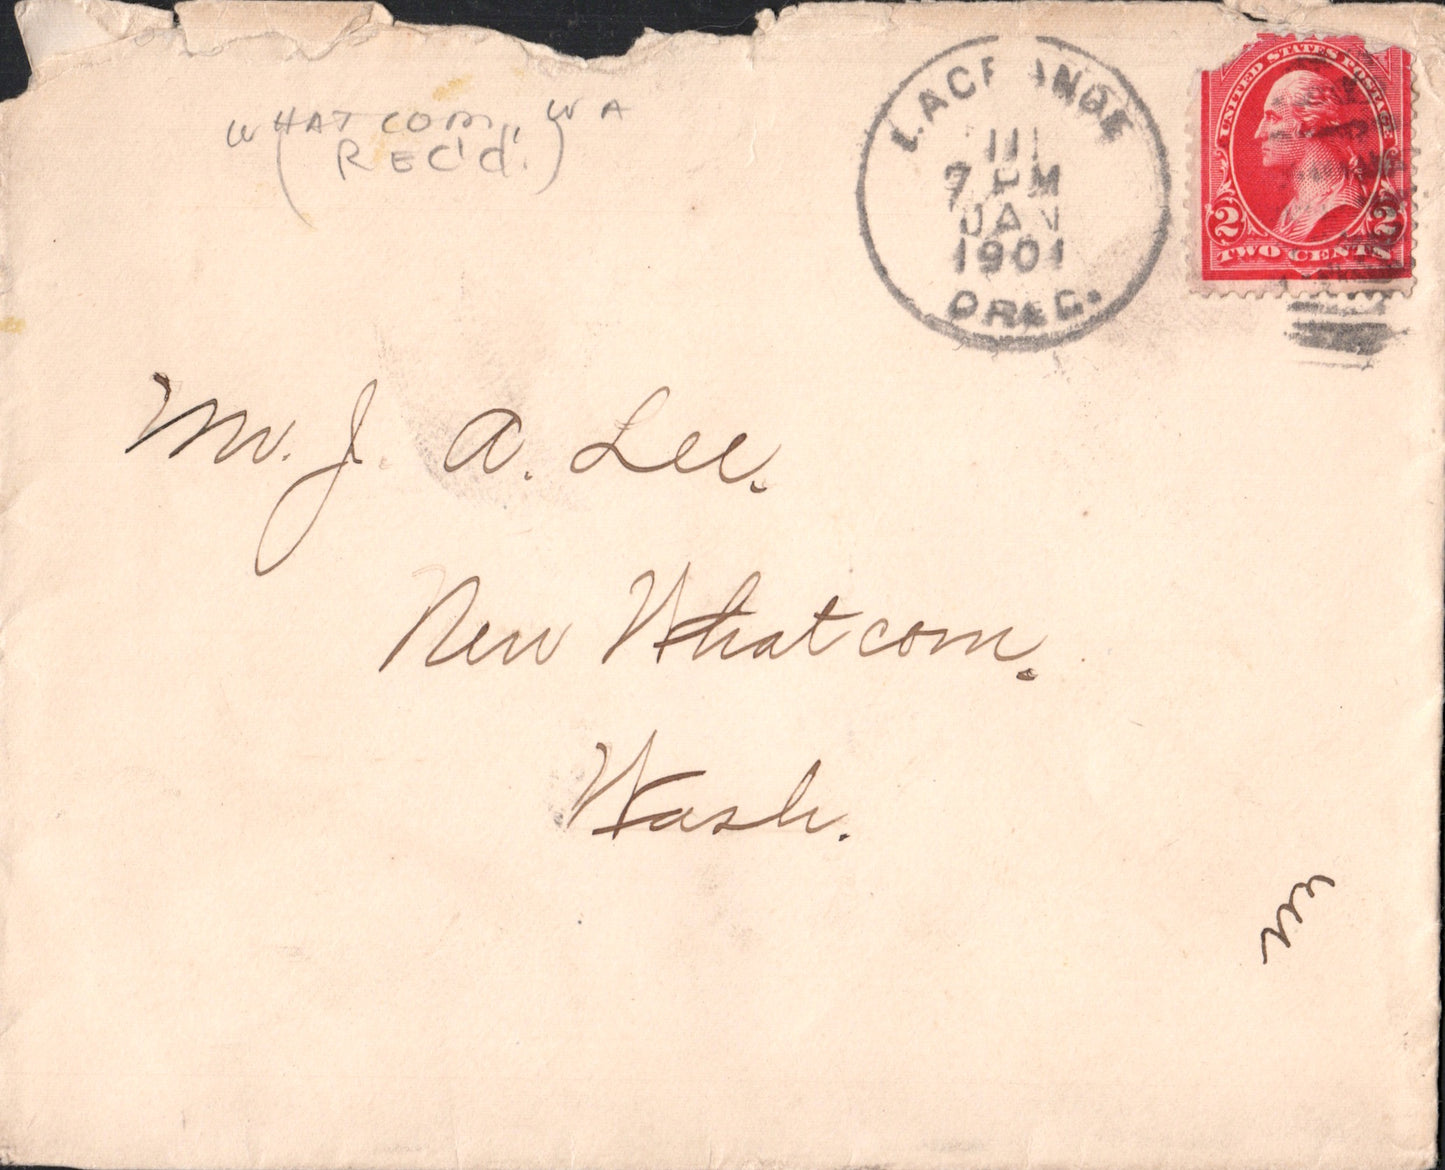 WHATCOM, WA
(REC'd.)
LAGRANDE
11
7 PM
JAN
1901
OREG.
UNITED STATES POSTAGE
2 2
TWO CENTS
Mr. J. A. Lee.
New Whatcom.
Wash.